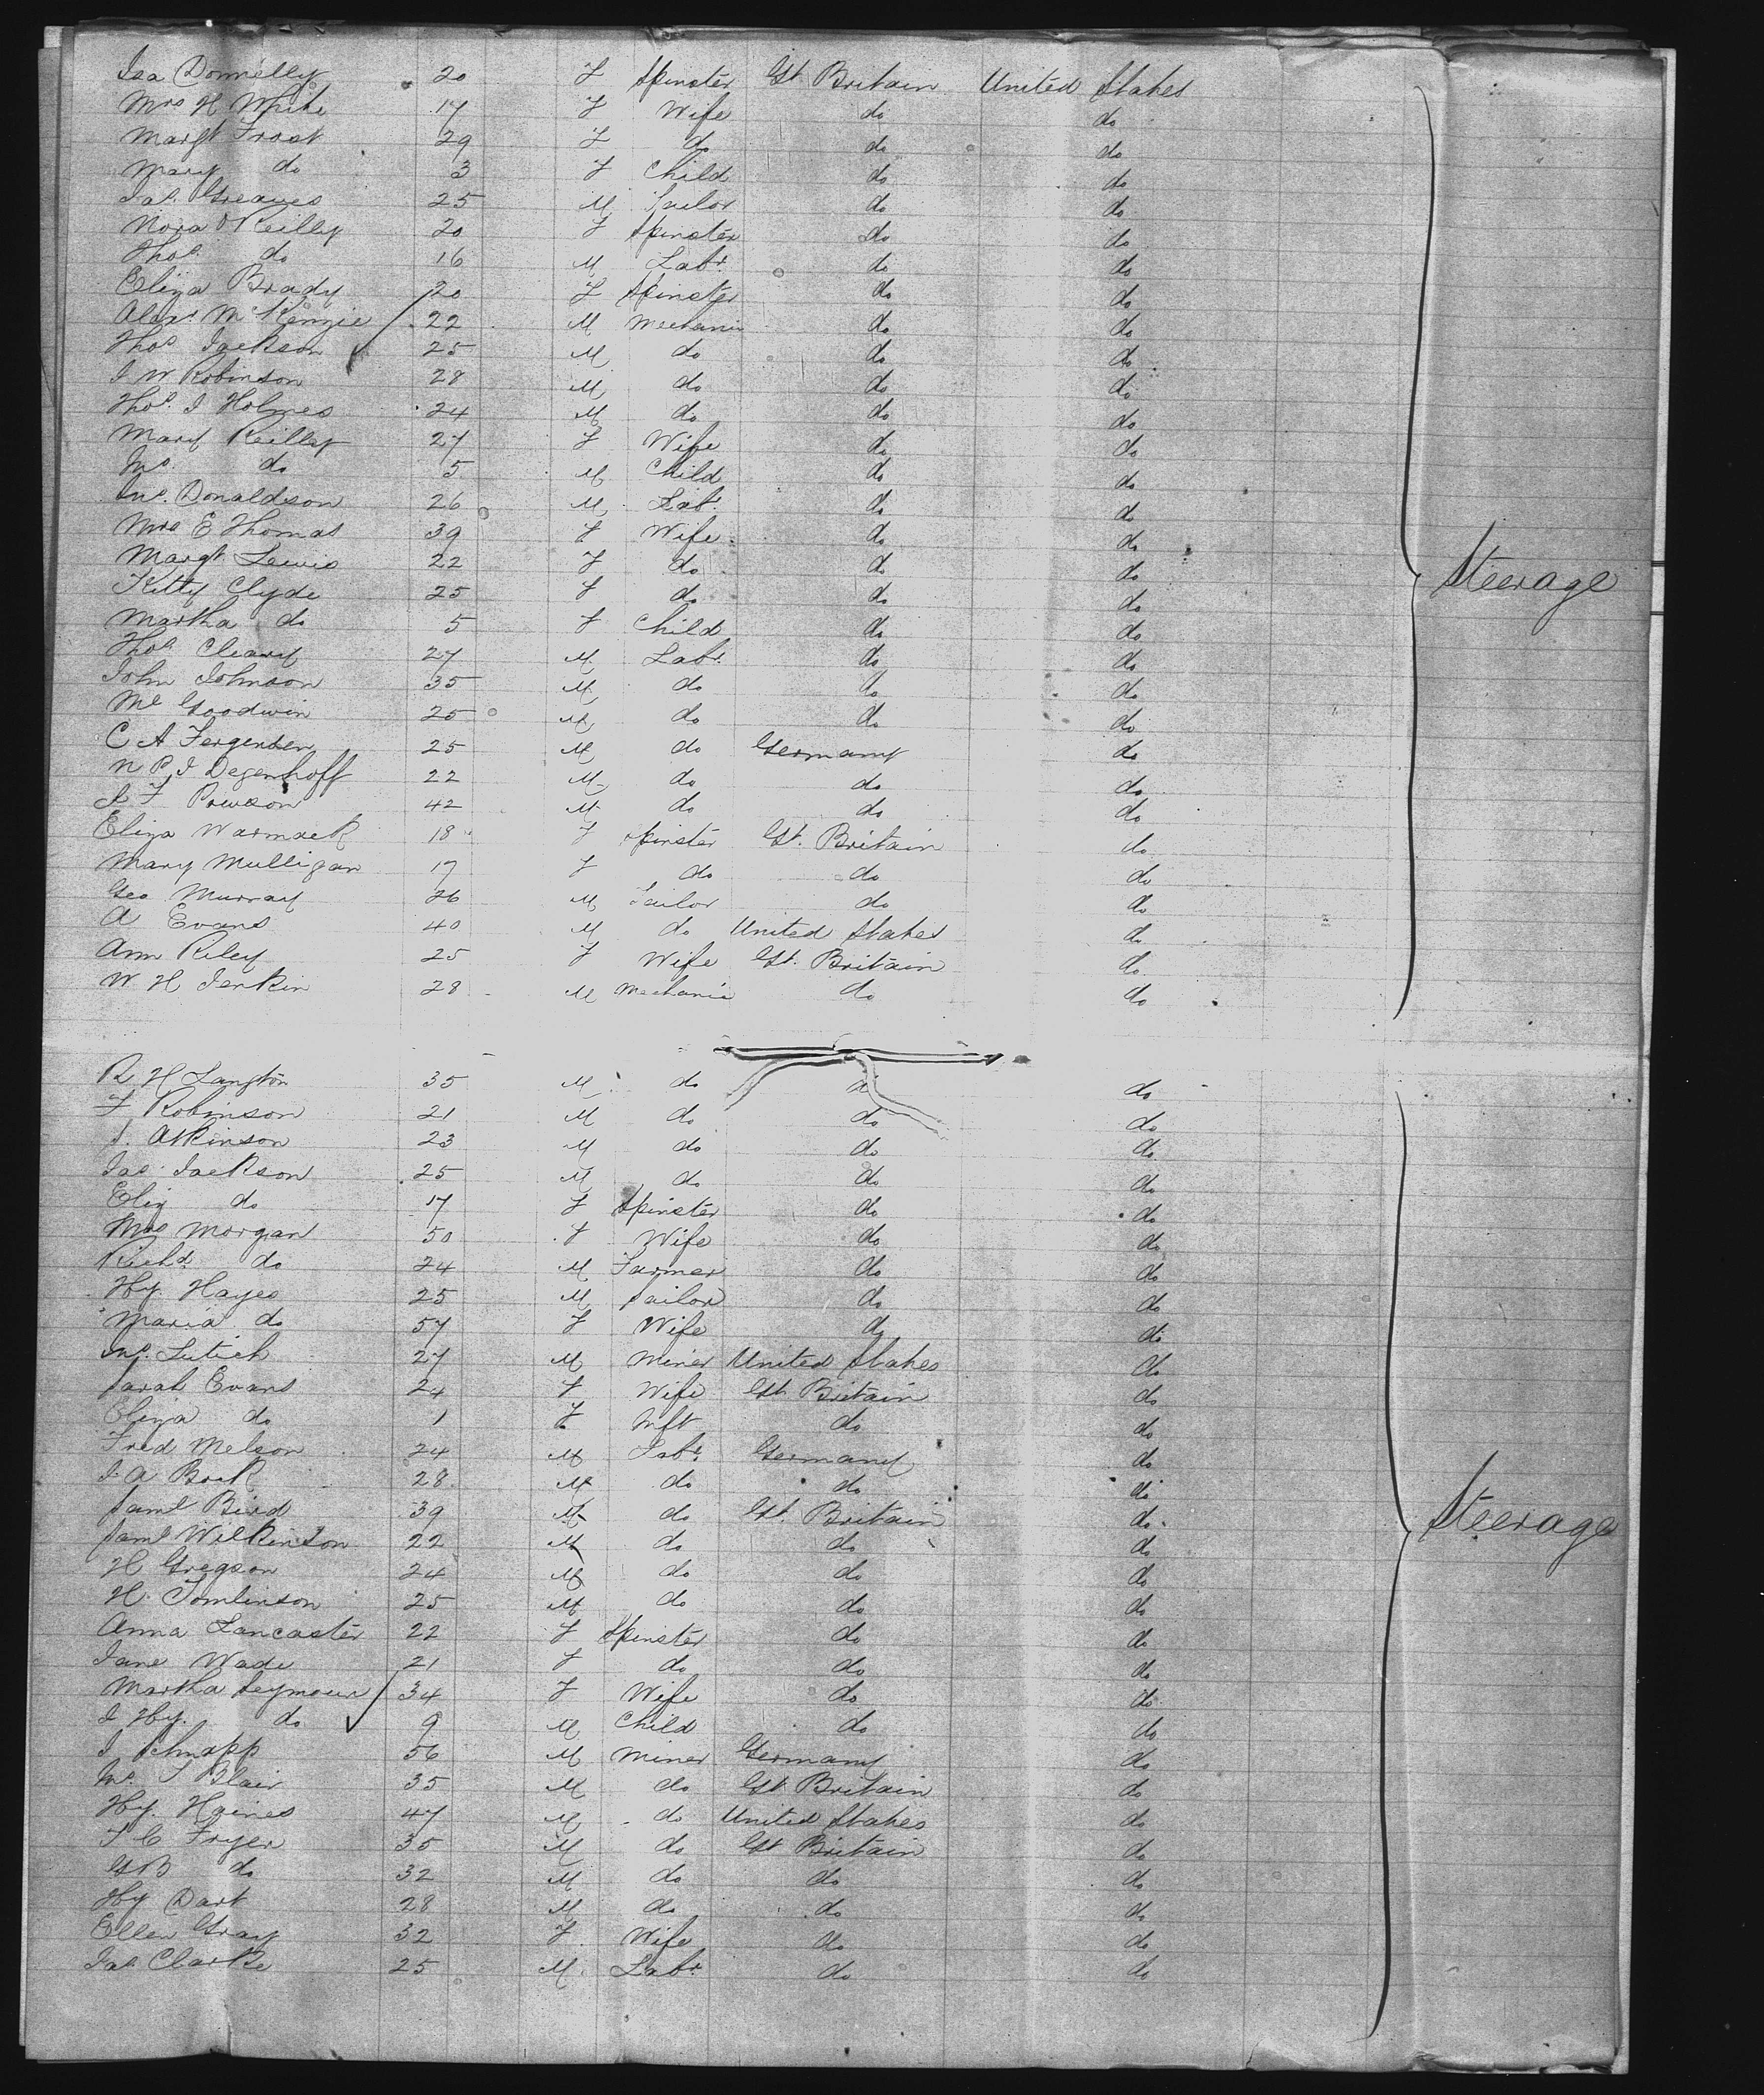 Isa Donnelly 20 F Spinster Gt Britain United States
Mrs H White 17 F Wife do do
Margt Frost 29 F do do do
Mary do 3 F Child do do
Jas. Greaves 25 M Tailor do do
Nora O'Reilly 20 F Spinster do do
Thos. do 16 M Labr. do do
Eliza Brady 20 F Spinster do do
Alexr McKenzie 22 M Mechanic do do
Thos Jackson 25 M do do do
J W Robinson 28 M do do do
Thos. J Holmes 24 M do do do
Mary Reilly 27 F Wife do do
Jno. do 5 M Child do do
Jno. Donaldson 26 M Labr. do do
Mrs E Thomas 39 F Wife do do
Margt Lewis 22 F do do do
Kitty Clyde 25 F do do do
Steerage
Martha do 5 F Child do do
Thos Cleary 27 M Labr. do do
John Johnson 35 M do do do
Ml Goodwin 25 M do do do
C A Fergensen 25 M do Germany do
N P J Degenhoff 22 M do do do
F 42 M do do do
Eliza Warmack 18 F Spinster Gt. Britain do
Mary Mulligan 17 F do do do
Geo Murray 26 M Tailor do do
A Evans 40 M do United States do
Ann Riley 25 F Wife Gt. Britain do
W H Jenkin 28 M Mechanic do do
R H Langton 35 M do do do
F Robinson 21 M do do do
J. Atkinson 23 M do do do
Jas. Jackson 25 M do do do
Eliz do 17 F Spinster do do
Mrs Morgan 50 F Wife do do
Richd. do 24 M Farmer do do
Hy. Hayes 25 M Sailor do do
Maria do 57 F Wife do do
Jno. Lutich 27 M Miner United States do
Sarah Evans 24 F Wife Gt Britain do
Eliza do 1 F Inft do do
Fred Melson 24 M Labr. Germany do
J. A Bock 28 M do do do
Saml Bird 39 M do Gt. Britain do
Steerage
Saml Wilkinson 22 M do do do
H Gregson 24 M do do do
H. Tomlinson 25 M do do do
Anna Lancaster 22 F Spinster do do
Jane Wade 21 F do do do
Martha Seymour 34 F Wife do do
J Hy. do 9 M Child do do
J Schnapp 56 M Miner Germany do
T Blair 35 M do Gt Britain do
Hy. Haines 47 M do United States do
T C Fryer 35 M do Gt Britain do
G B do 32 M do do do
Hy Dart 28 M do do do
Ellen Gray 32 F Wife do do
Jas Clarke 25 M Labr. do do